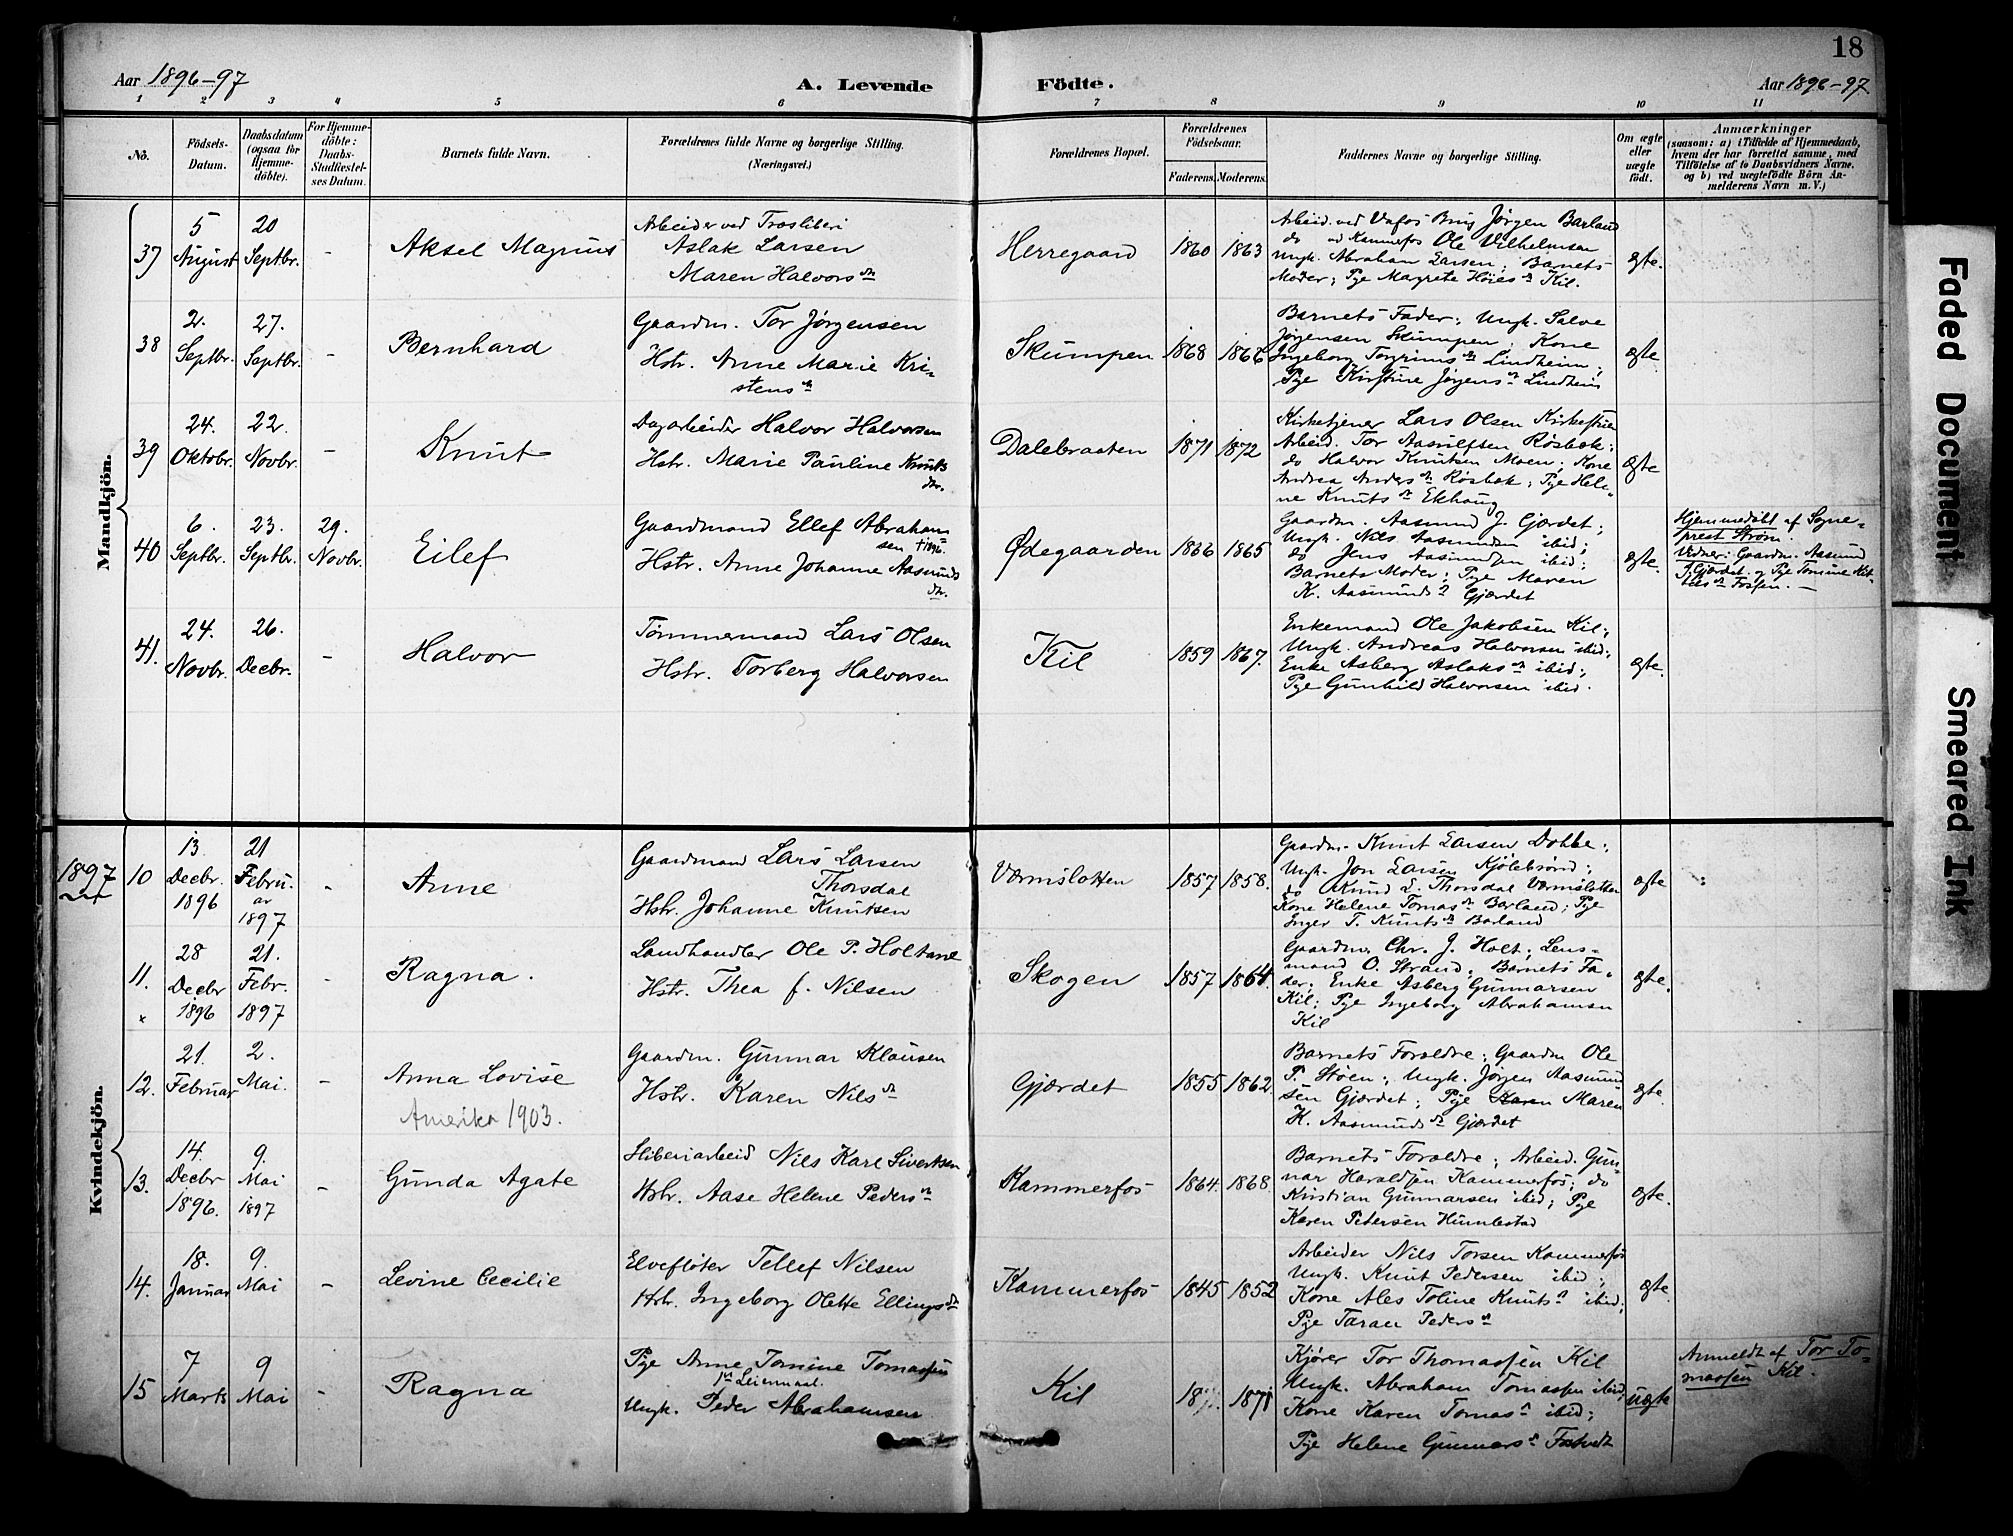 18
Aar 1896-97
A. Levende Födte.
Aar 1896-97
1 2 3 4 5 6 7 8 9 10 11
No.
Födsels-Datum.
Daabsdatum (ogsaa for Hjemme-döbte).
For Hjemme-döbte: Daabs-Stadfæstel-ses Datum.
Barnets fulde Navn.
Forældrenes fulde Navne og borgerlige Stilling.
(Næringsvei.)
Forældrenes Bopæl.
Forældrenes Födselsaar.
Faderens. Moderens.
Faddernes Navne og borgerlige Stilling.
Om ægte eller uægte födt.
Anmærkninger
(saasom: a) i Tilfælde af Hjemmedaab, hvem der har forrettet samme, med Tilföielse af to Daabsvidners Navne, og b) ved uægtefödte Börn Anmelderens Navn m. V.)
Mandkjön.
37
5 August
20 Septbr.
-
Aksel Magnus
Arbeider ved Træsliberi
Aslak Larsen
Maren Halvorsdn
Herregaard
1860 1863
Arbeid. ved Vafos Brug Jørgen Barland
do ved Kammefos Ole Vilhelmsen
Ungk. Abraham Larsen; Barnets
Moder; Pge Magrete Høiesdn Kil.
ægte.
38
2. Septbr.
27. Septbr.
-
Bernhard
Gaardm. Tor Jørgensen
Hstr. Anne Marie Kri-
stensdn
Skumpen
1868 1866
Barnets Fader; Ungk. Salve
Jørgensen Skumpen; Kone
Ingeborg Torgrimsdn Lindheim;
Pge Kirstine Jørgensdn Lindheim
ægte
39
24. Oktobr.
22. Novbr.
-
Knut
Dagarbeider Halvor Halvorsen
Hstr. Marie Pauline Knuts
dn.
Dalebraaten
1871 1872
Kirketjener Lars Olsen
Arbeid. Tor Aasulfsen Røsbak;
do Halvor Knutsen Moen; Kone
Andrea Andersdn Røsbak; Pge Hele-
ne Knutsdn Ekhaug
ægte
40
6. Septbr.
23. Septbr.
29. Novbr.
Eilef
Gaardmand Ellef Abraham
sen †1896.
Hstr. Anne Johanne Aasmunds
dn.
Ødegaarden
1866 1865
Gaardm. Aasmund J. Gjærdet;
Ungk. Nils Aasmundsen ibid;
do Jens Aasmundsen ibid;
Barnets Moder; Pge Maren
K. Aasmundsdn Gjærdet
ægte.
Hjemmedöbt af Sogne-
prest Strøm.
Vidner: Gaardm. Aasmund
J. Gjærdet og Pge Tomine Kit-
telsdn Fossen. -
41.
24. Novbr.
26. Decbr.
-
Halvor
Tømmermand Lars Olsen
Hstr. Torberg Halvorsen
Kil
1859 1867.
Enkemand Ole Jakobsen Kil;
Ungk. Andreas Halvorsen ibid;
Enke Asberg Aslaksdn ibid;
Pge Gunhild Halvorsen ibid.
ægte.
Kvindekjön.
1897
10
13. Decbr. 1896
21 Februar 1897
-
Anne
Gaardmand Lars Larsen
Thorsdal
Hstr. Johanne Knutsen
Værmslotten
1857 1858.
Gaardm. Knut Larsen Dobbe;
Ungk. Jon Larsen Kjølebrønd;
do Knud L. Thorsdal Værmslotten
Kone Helene Tomasdn Barland; Pge
Inger T. Knutsdn Barland
ægte
11.
x
28 Decbr 1896
21. Febr. 1897
-
Ragna.
Landhandler Ole P. Holtane
Hstr. Thea f. Nilsen
Skogen
1857 1864.
Gaardm. Chr. J. Holt; Lens-
mand O. Strand; Barnets Fa-
der; Enke Asberg Gunnarsen
Kil; Pge Ingeborg Abrahamsen
Kil
ægte.
12.
21. Februar
2. Mai.
-
Anna Lovise
Amerika 1903.
Gaardm. Gunnar Klausen
Hstr. Karen Nilsdn
Gjærdet
1855 1862.
Barnets Forældre; Gaardm Ole
P. Støen; Ungk. Jørgen Aasmund-
sen Gjærdet; Pge Karen Maren
K. Aasmundsdn Gjærdet
ægte.
13.
14. Decbr 1896.
9. Mai 1897
-
Gunda Agate
Sliberiarbeid Nils Karl Sivertsen
Hstr. Aase Helene Pedersdn
Kammerfos
1864. 1868.
Barnets Forældre; Arbeid. Gun-
nar Haraldsen Kammerfos; do
Kristian Gunnarsen ibid; Pge
Karen Petersen Humlestad
ægte.
14.
18. Januar
9. Mai
-
Levine Cecilie
Elvefløter Tellef Nilsen
Hstr. Ingeborg Olette Ellingsdn
Kammerfos
1845 1852
Arbeider Nils Torsen Kammerfos
Ungk. Knut Pedersen ibid;
Kone Ales Toline Knutsdn ibid;
Pge Taran Pedersdn
ægte.
15
7 Marts
9 Mai
-
Ragna
Pge Anne Tomine Tomassen
1st Leiermaal.
Ungk. Peder Abrahamsen
Kil
1871
Kjører Tor Thomassen Kil
Ungk. Abraham Tomassen ibid;
Kone Karen Tomasdn ibid;
Pge Helene Gunnarsdn
uægte
Anmeldt af Tor To-
massen Kil.
Faded Document
Smeared Ink